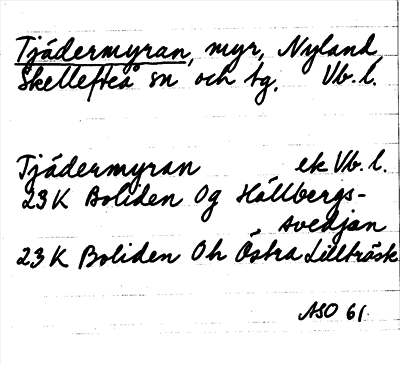 Tjädermyran, myr, Nyland
Skellefteå sn och tg. Vb. l.
Tjädermyran ek Vb. l.
23 K Boliden 0g Hällbergs-
svedjan
23 K Boliden 0h Östra Lillträsk
ASO 61.